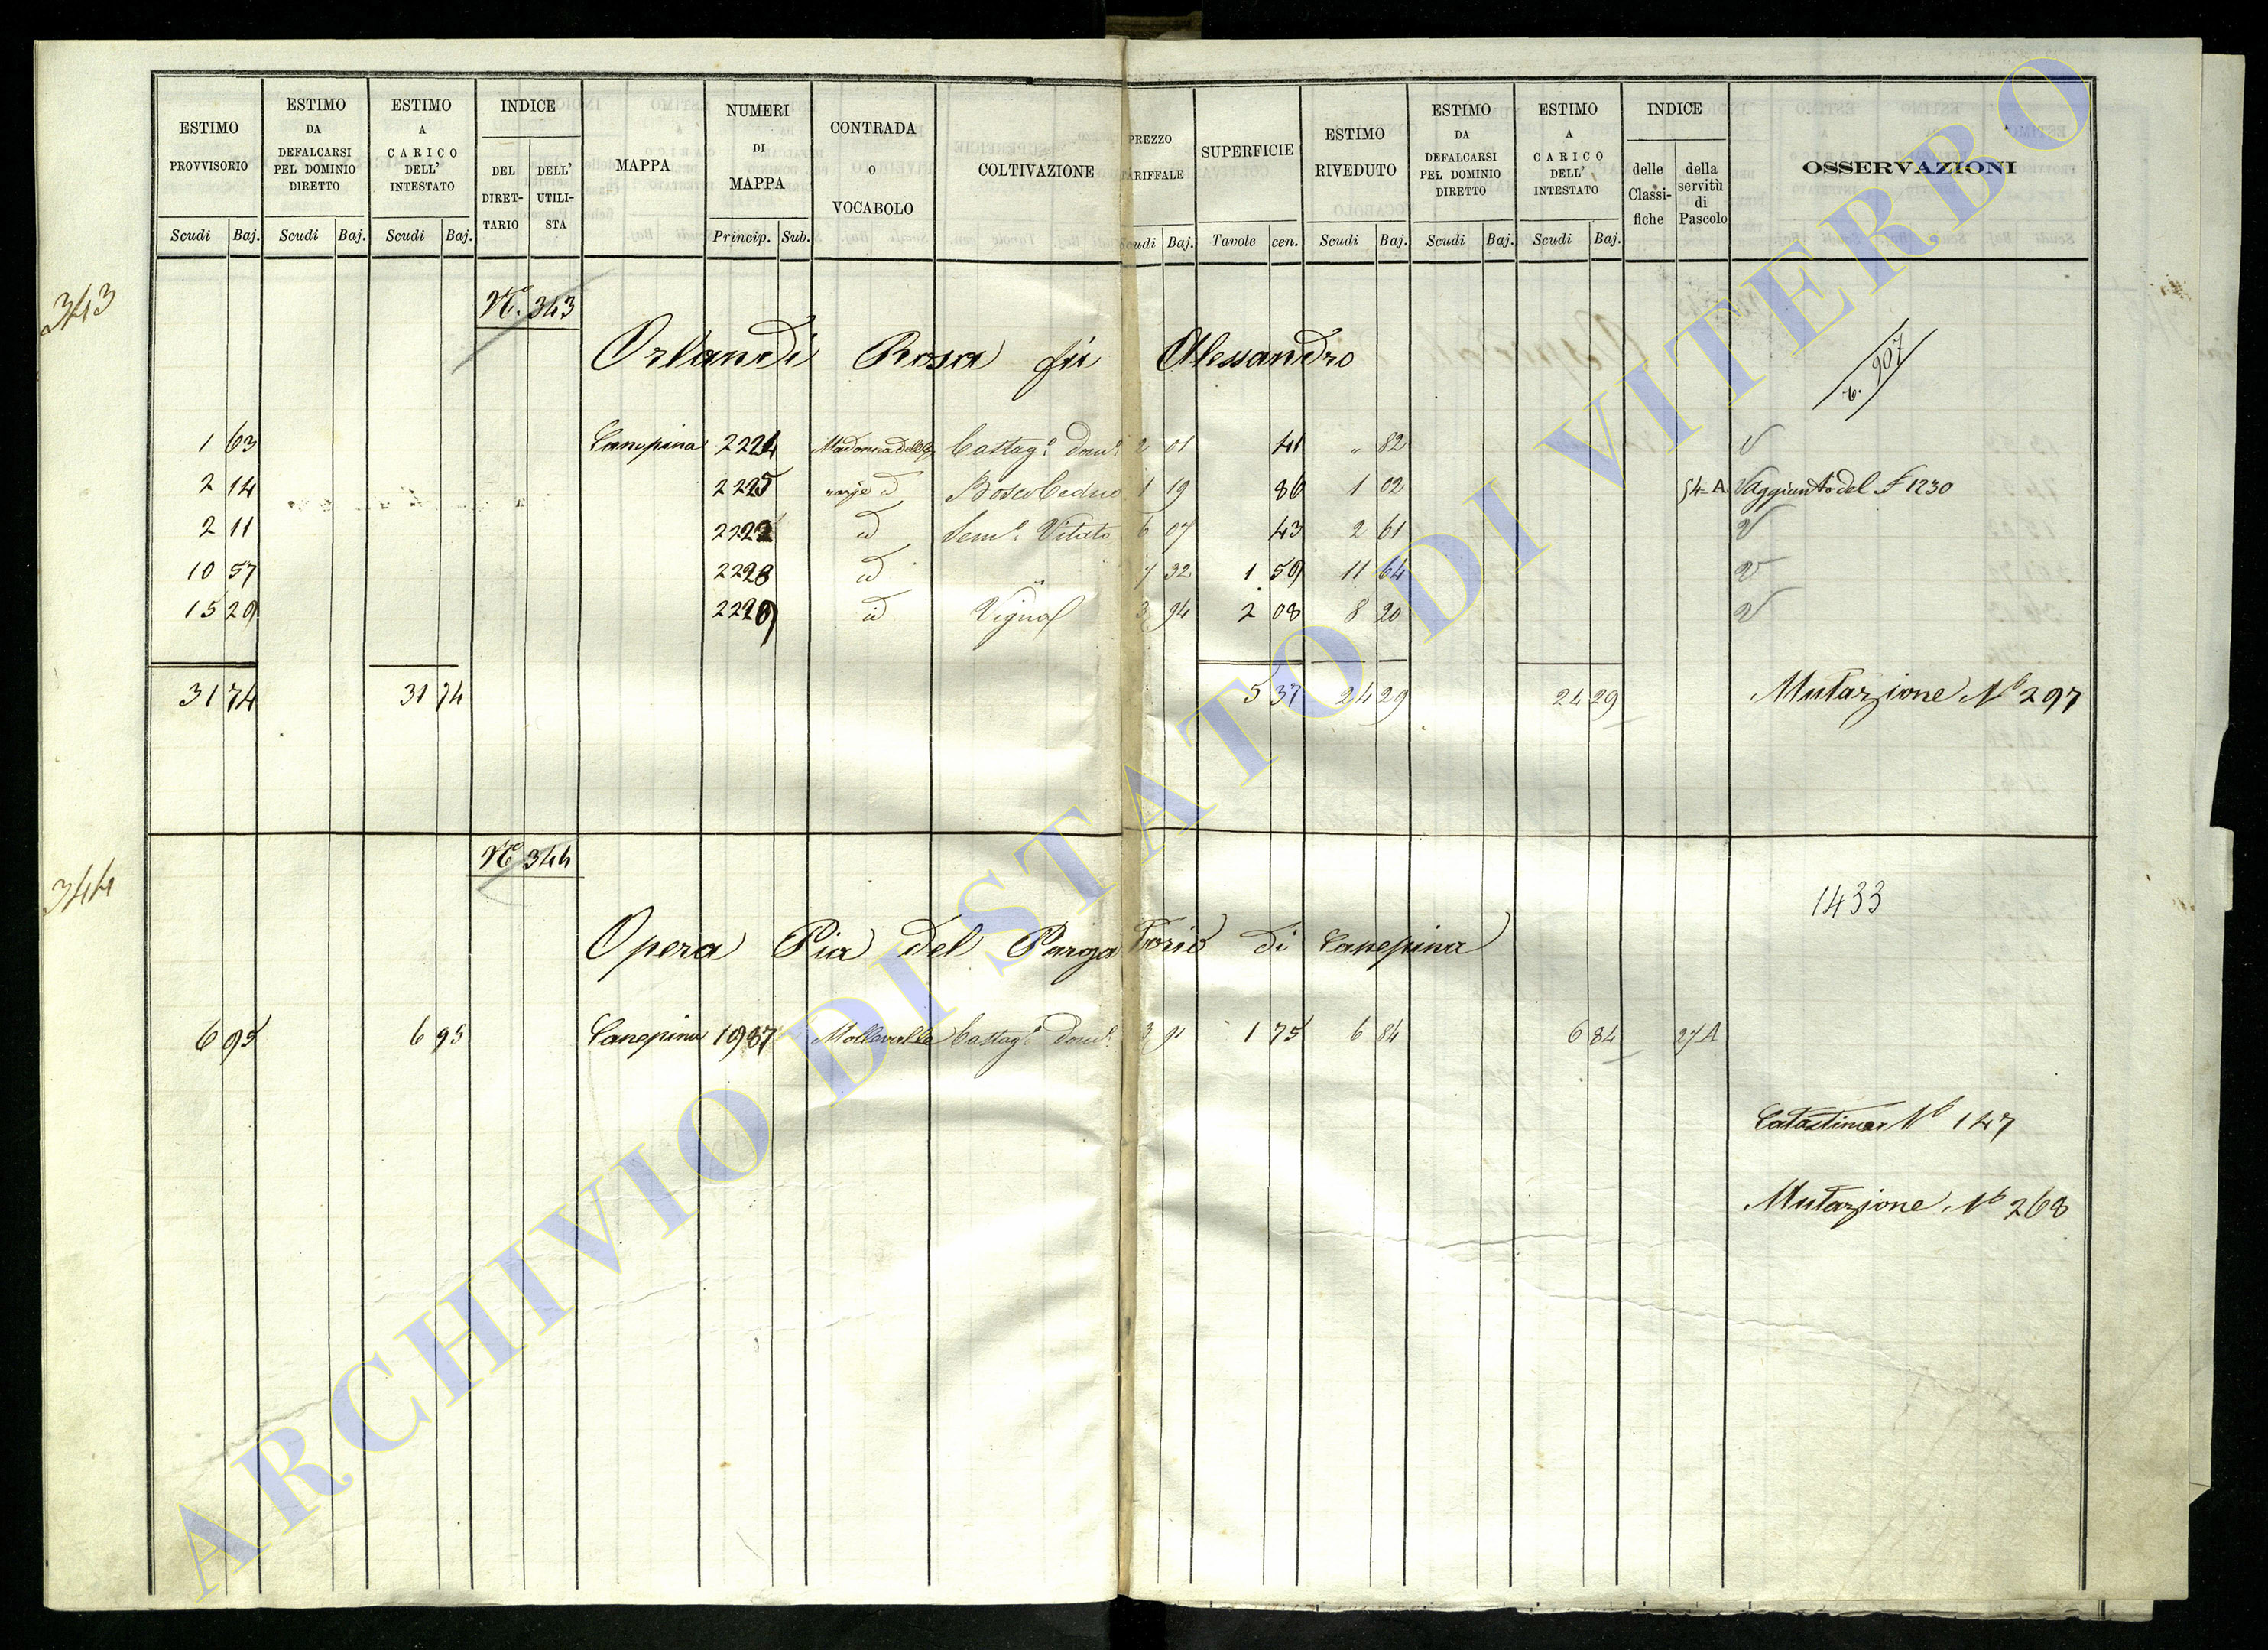 ESTIMO PROVVISORIO Scudi Baj.
ESTIMO DA DEFALCARSI PEL DOMINIO DIRETTO Scudi Baj.
ESTIMO A CARICO DELL' INTESTATO Scudi Baj.
INDICE DEL DIRET-TARIO DELL' UTILI-STA
MAPPA
NUMERI DI MAPPA Princip. Sub.
CONTRADA O VOCABOLO
COLTIVAZIONE
PREZZO TARIFFALE Scudi Baj.
SUPERFICIE Tavole cen.
ESTIMO RIVEDUTO Scudi Baj.
ESTIMO DA DEFALCARSI PEL DOMINIO DIRETTO Scudi Baj.
ESTIMO A CARICO DELL' INTESTATO Scudi Baj.
INDICE delle Classi-fiche della servitù di Pascolo
OSSERVAZIONI
343
Nº. 343
Orlandi Rosa fu Alessandro
907
1 63 Canepina 2224 Castag.º dom.º 2 01 41 " 82
2 14 2225 id Bosco Ceduo 1 19 86 1 02 54 A Aggiunto del F 1230
2 11 id Sem.º Vitato 6 07 43 2 61
10 57 2228 id " 7 32 1 59 11 64
15 29 2229 id Vigna 3 94 2 08 8 20
31 74 31 74 5 37 24 29 24 29 Mutazione Nº 297
344
Nº 344
1433
Opera Pia del Purgatorio di Canepina
6 95 6 95 Canepina 1987 Mollevalle Castag.º dom.º 3 91 1 75 6 84 6 84 27 A
Catastino Nº 147
Mutazione Nº 268
ARCHIVIO DI STATO DI VITERBO